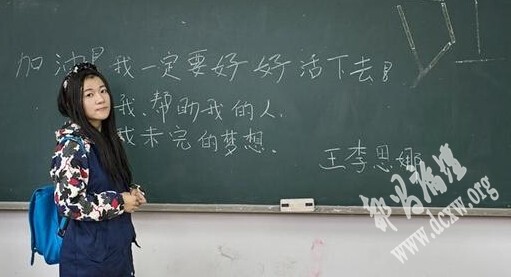 加油!我一定要好好活下去!
我、帮助我的人、
我未完的梦想。
王李思娜
www.dcxw.org